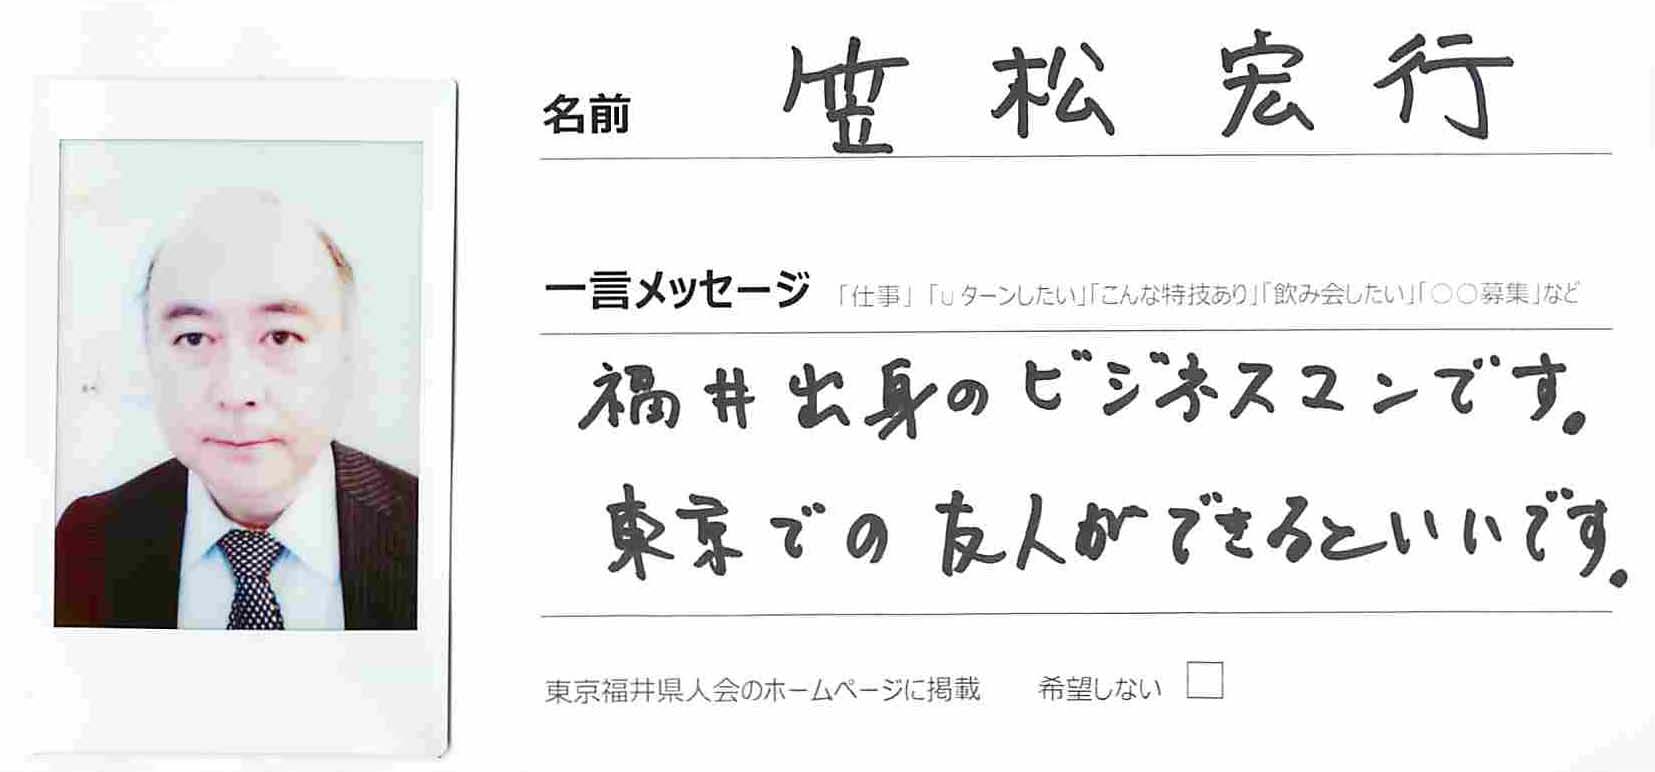 名前 笠松宏行
一言メッセージ 「仕事」「Uターンしたい」「こんな特技あり」「飲み会したい」「○○募集」など
福井出身のビジネスマンです。
東京での友人ができるといいです。
東京福井県人会のホームページに掲載 希望しない □